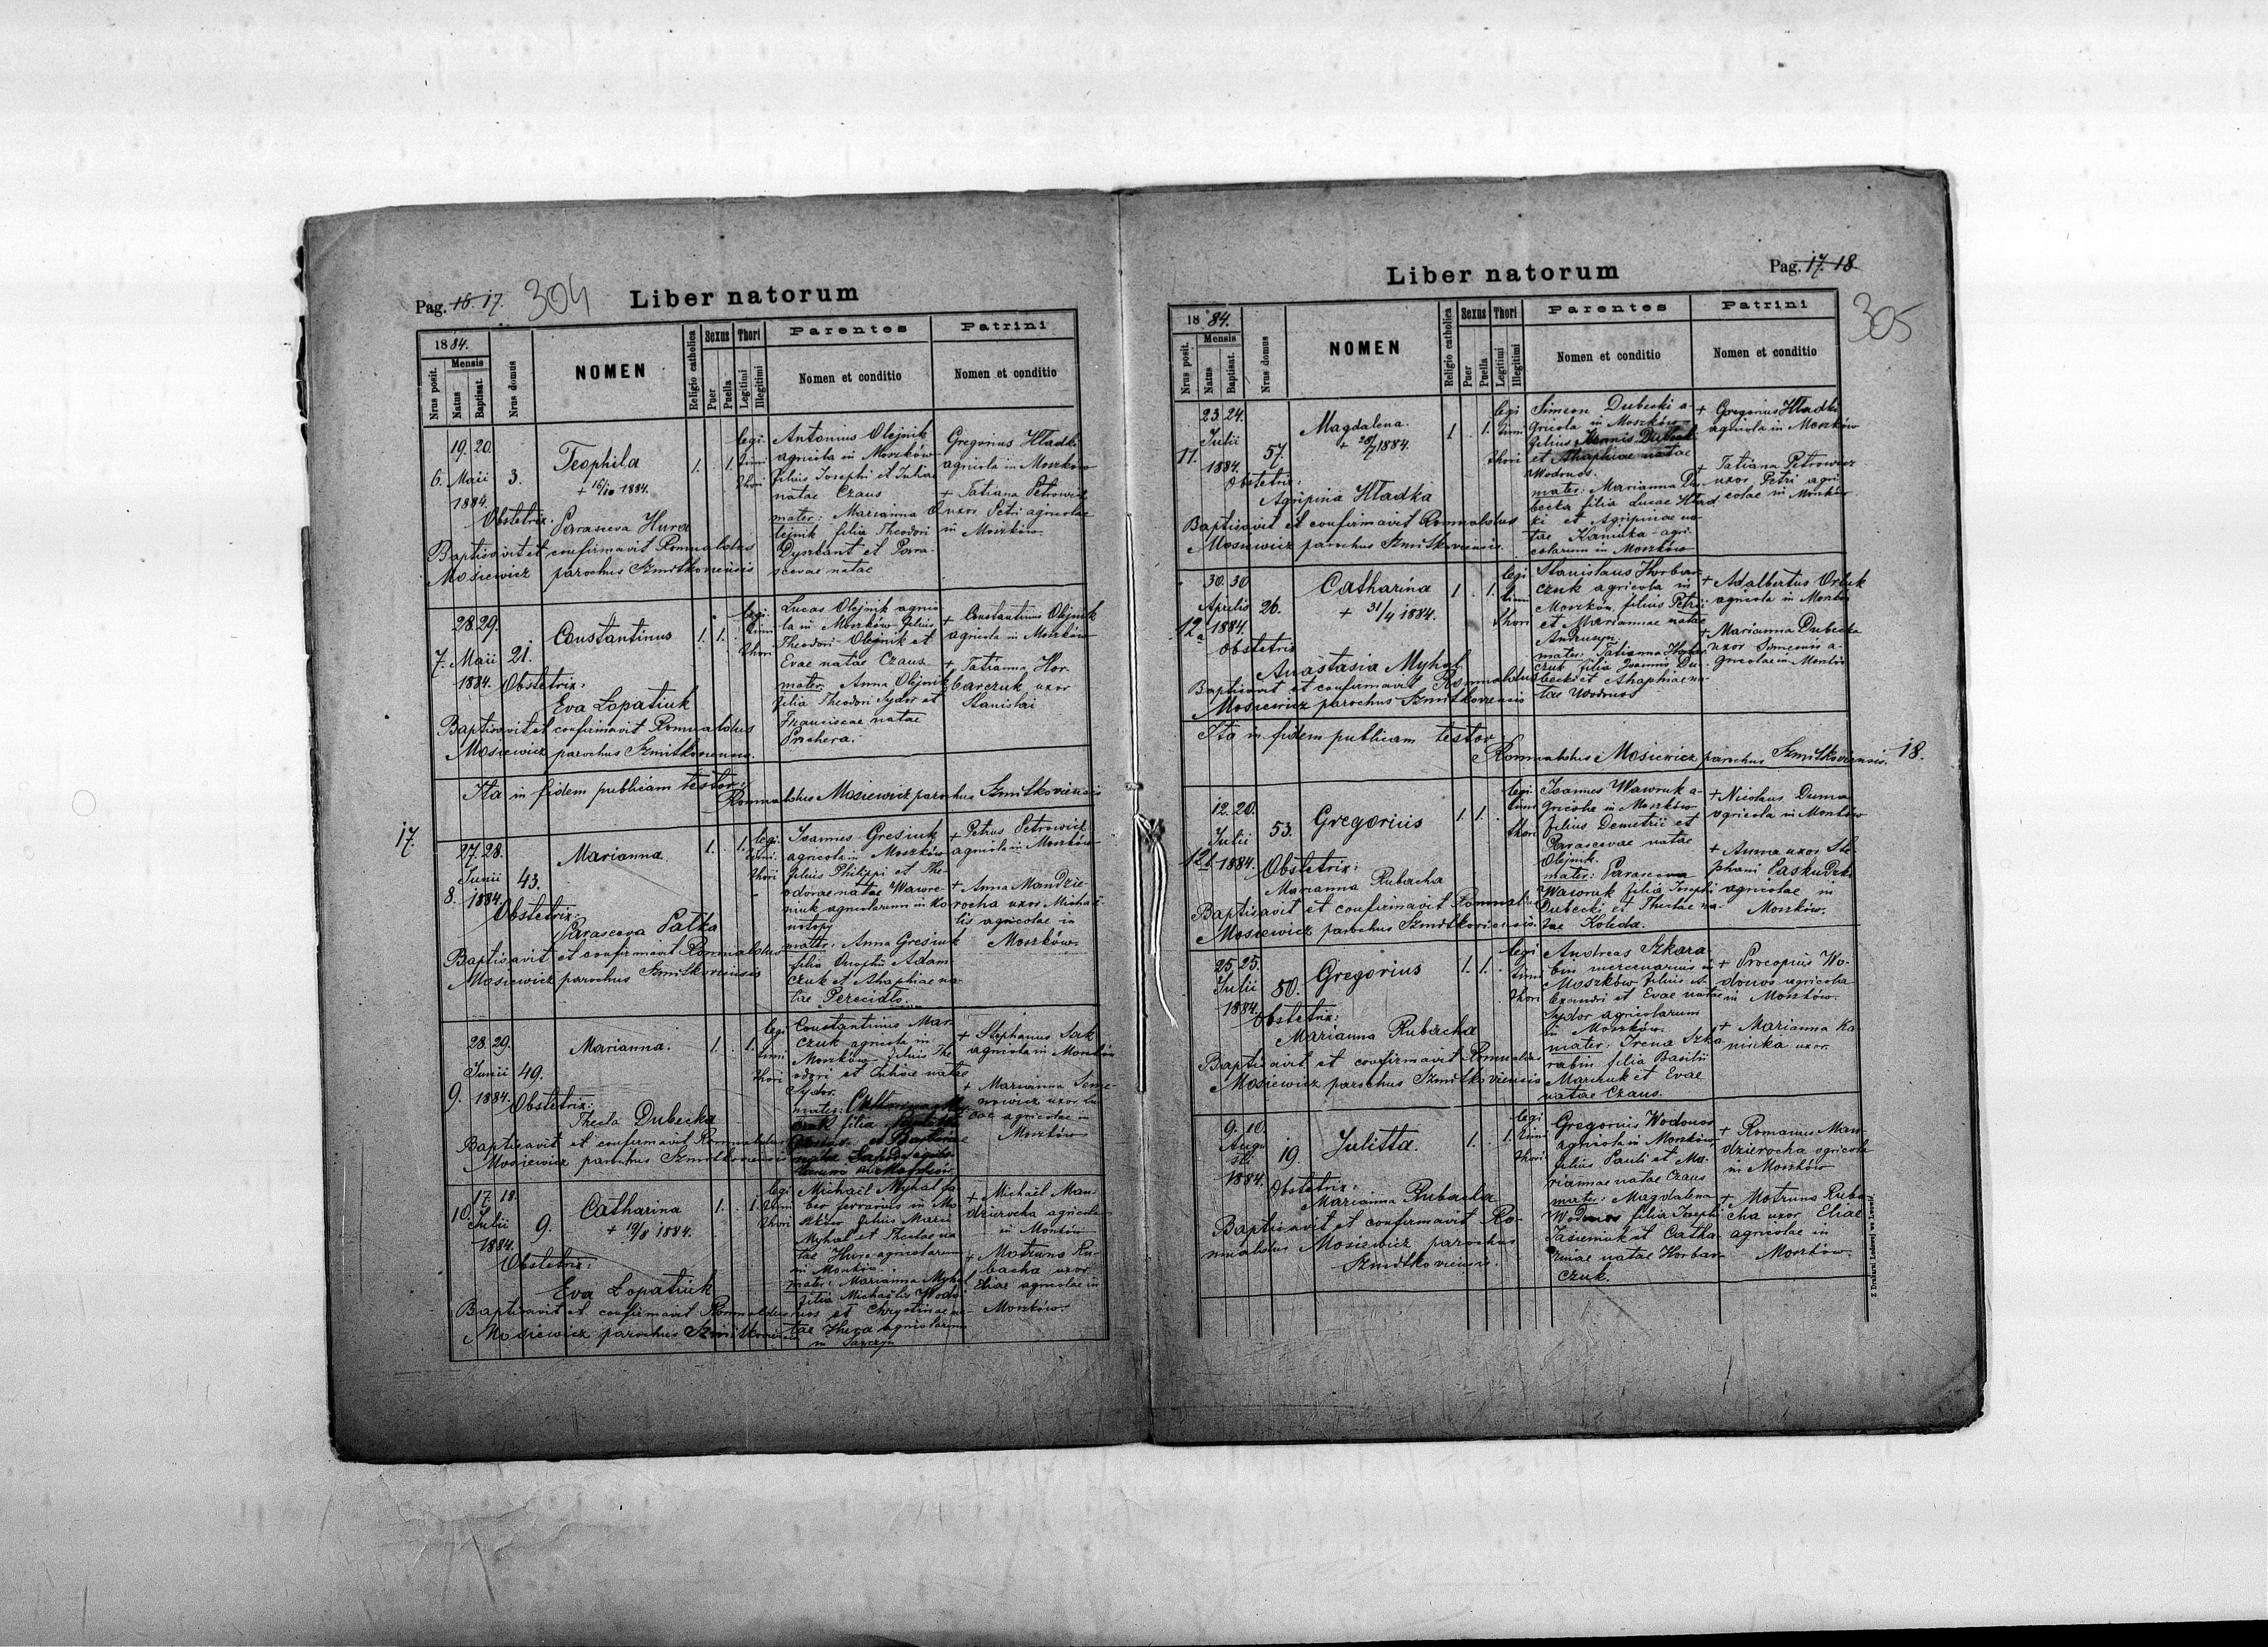 Pag. 16. 17. 304 Liber natorum
1884.
Nrus posit.
Mensis
Natus
Baptisat.
Nrus domus
NOMEN
Religio catholica
Sexus
Puer
Puella
Thori
Legitimi
Illegitimi
Parentes
Nomen et conditio
Patrini
Nomen et conditio
6.
19. 20.
Maii
1884.
3.
Teophila
+ 16/10 1884.
Obstetrix:
Parasceva Hura
Baptisavit et confirmavit Romualdus
Mosiewicz parochus Szmitkoviensis
1. 1.
legi
timi
thori
Antonius Olejnik
agricola in Moszków
filius Josephi et Juliae
natae Czaus
mater: Marianna O
lejnik filia Theodori
Dyszkant et Para-
scevae natae
Gregorius Hładki
agricola in Moszków
+ Tatiana Petrowicz
uxor Petri agricolae
in Moszków
7.
28. 29.
Maii
1884.
21.
Constantinus
Obstetrix:
Eva Lopatiuk
Baptisavit et confirmavit Romualdus
Mosiewicz parochus Szmitkoviensis.
1. 1.
legi
timi
thori
Lucas Olejnik agrico
la in Moszków filius
Theodori Olejnik et
Evae natae Czaus
mater: Anna Olejnik
filia Theodori Sydor et
Franciscae natae
Prichera.
+ Constantinus Olejnik
agricola in Moszków
+ Tatianna Hor-
barczuk uxor
Stanislai
Ita in fidem publicam testor:
Romualdus Mosiewicz parochus Szmitkoviensis
17.
8.
27. 28.
Junii
1884.
43.
Marianna.
Obstetrix:
Parasceva Patka
Baptisavit et confirmavit Romualdus
Mosiewicz parochus Szmitkoviensis
1. 1.
legi
timi
thori
Joannes Gresiuk
agricola in Moszków
filius Philippi et The-
odorae natae Wawre-
niuk agricolarum in Ko
notopy
mater: Anna Gresiuk
filia Onophrii Adam
czuk et Ahaphiae na
tae Perecidło.
+ Petrus Petrowicz
agricola in Moszków
+ Anna Mandzie-
rocha uxor Michaë-
lis agricolae in
Moszków
9.
28. 29.
Junii
1884.
49.
Marianna.
Obstetrix:
Thecla Dubecka
Baptisavit et confirmavit Romualdus
Mosiewicz parochus Szmitkoviensis
1. 1.
legi
timi
thori
Constantinus Mar-
czuk agricola in
Moszków filius The
odori et Juliae natae
Sydor.
mater: Catharina Mar
czuk filia
+ Stephanus Sak
agricola in Moszków
+ Marianna Seme-
nowicz uxor Lu
cae agricolae in
Moszków
10.
17. 18.
Julii
1884.
9.
Catharina
+ 19/8 1884.
Obstetrix:
Eva Lopatiuk
Baptisavit et confirmavit Romualdus
Mosiewicz parochus Szmitkoviensis
1. 1.
legi
timi
thori
Michaël Myhal fa
ber ferrarius in Mo
szków filius Marci
Myhal et Theclae na
tae Hura agricolarum
in Moszków.
mater: Marianna Myhal
filia Michaëlis Wodo
nos et Chrystinae na-
tae Hura agricolarum
in
+ Michaël Man
dzierocha agricola
in Moszków
+ Motruna Ru-
bacha uxor
Eliae agricolae in
Moszków.
Liber natorum Pag. 17. 18
305
1884.
Nrus posit.
Mensis
Natus
Baptisat.
Nrus domus
NOMEN
Religio catholica
Sexus
Puer
Puella
Thori
Legitimi
Illegitimi
Parentes
Nomen et conditio
Patrini
Nomen et conditio
11.
23. 24.
Julii
1884.
57.
Magdalena.
+ 28/7 1884.
Obstetrix:
Agripina Hładka
Baptisavit et confirmavit Romualdus
Mosiewicz parochus Szmitkoviensis.
1 1.
legi
timi
thori
Simeon Dubecki a-
gricola in Moszków
filius Joannis Dubecki
et Ahaphiae natae
Wodonos.
mater: Marianna Du
becka filia Lucae Hład
ki et Agripinae na
tae Kamuka agri-
colarum in Moszków
+ Gregorius Hładki
agricola in Moszków
+ Tatiana Petrowicz
uxor Petri agri
colae in Moszków
12a
30. 30
Aprilis
1884.
26.
Catharina
+ 31/4 1884.
Obstetrix
Anastasia Myhal
Baptisavit et confirmavit Romualdus
Mosiewicz parochus Szmitkoviensis
1 1.
legi
timi
thori
Stanislaus Horbar-
czuk agricola in
Moszków, filius Petri
et Mariannae natae
Andruszyn.
mater: Tatianna Horbar
czuk filia Joannis Du-
becki et Ahaphiae na-
tae Wodonos
+ Adalbertus Orluk
agricola in Moszków
+ Marianna Dubecka
uxor Simeonis a-
gricolae in Moszków
Ita in fidem publicam testor
Romualdus Mosiewicz parochus Szmitkoviensis. 18.
12b
12. 20.
Julii
1884.
53.
Gregorius
Obstetrix:
Marianna Rubacha
Baptisavit et confirmavit Romualdus
Mosiewicz parochus Szmitkoviensis.
1. 1.
legi
timi
thori
Joannes Wawruk a-
gricola in Moszków
filius Demetrii et
Parascevae natae
Olejnik.
mater: Parasceva
Wawruk filia Josephi
Dubecki et Theclae na-
tae Koleda.
+ Nicolaus Duma
agricola in Moszków
+ Anna uxor Ste-
phani Paskudzki
agricolae in
Moszków.
25. 25.
Julii
1884.
50.
Gregorius
Obstetrix:
Marianna Rubacha
Baptisavit et confirmavit Romualdus
Mosiewicz parochus Szmitkoviensis
1. 1.
legi
timi
thori
Andreas Szkara
bin mercenarius in
Moszków filius Al
exandri et Evae natae
Sydor agricolarum
in Moszków.
mater: Irena Szka
rabin filia Basilii
Marczuk et Evae
natae Czaus.
+ Procopius Wo-
donos agricola
in Moszków.
+ Marianna Ka
muka uxor
9. 10.
Augu
sti
1884.
19.
Julitta.
Obstetrix:
Marianna Rubacha
Baptisavit et confirmavit Ro-
mualdus Mosiewicz parochus
Szmitkoviensis.
1. 1.
legi
timi
thori
Gregorius Wodonos
agricola in Moszków,
filius Pauli et Ma-
riannae natae Czaus
mater: Magdalena
Wodonos filia Josephi
Jasieniuk et Catha
rinae natae Horbar-
czuk.
+ Romanus Man-
dzierocha agricola
in Moszków
+ Motruna Ruba
cha uxor Eliae
agricolae in
Moszków.
Z Drukarni Ludowej we Lwowie